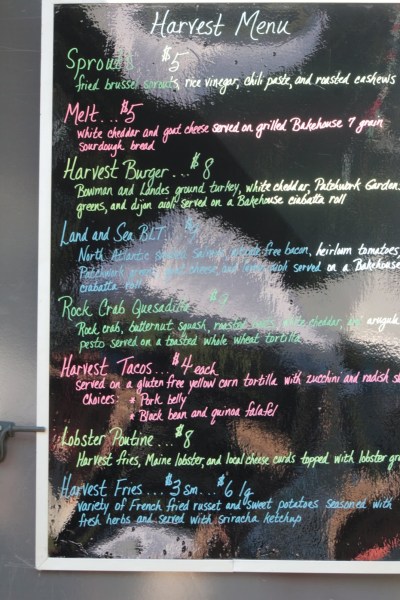 Harvest Menu
Sprouts $5
fried brussel sprouts, rice vinegar, chili paste, and roasted cashews
Melt...$5
white cheddar and goat cheese served on grilled Bakehouse 7 grain
sourdough bread
Harvest Burger...$8
Bowman and Landes ground turkey, white cheddar, Patchwork Gardens
greens, and dijon aioli served on a Bakehouse ciabatta roll
Land and Sea BLT
North Atlantic salmon, nitrate free bacon, heirloom tomatoes,
Patchwork greens, goat cheese, and aioli served on a Bakehouse
ciabatta roll
Rock Crab Quesadilla
Rock crab, butternut squash, roasted white cheddar, and arugula
pesto served on a toasted whole wheat tortilla
Harvest Tacos...$4 each
served on a gluten free yellow corn tortilla with zucchini and radish
Choices: * Pork belly
* Black bean and quinoa falafel
Lobster Poutine...$8
Harvest fries, Maine lobster, and local cheese curds topped with lobster
Harvest Fries...$3 sm...$6 lg
Variety of French fried russet and sweet potatoes seasoned with
fresh herbs and served with sriracha ketchup